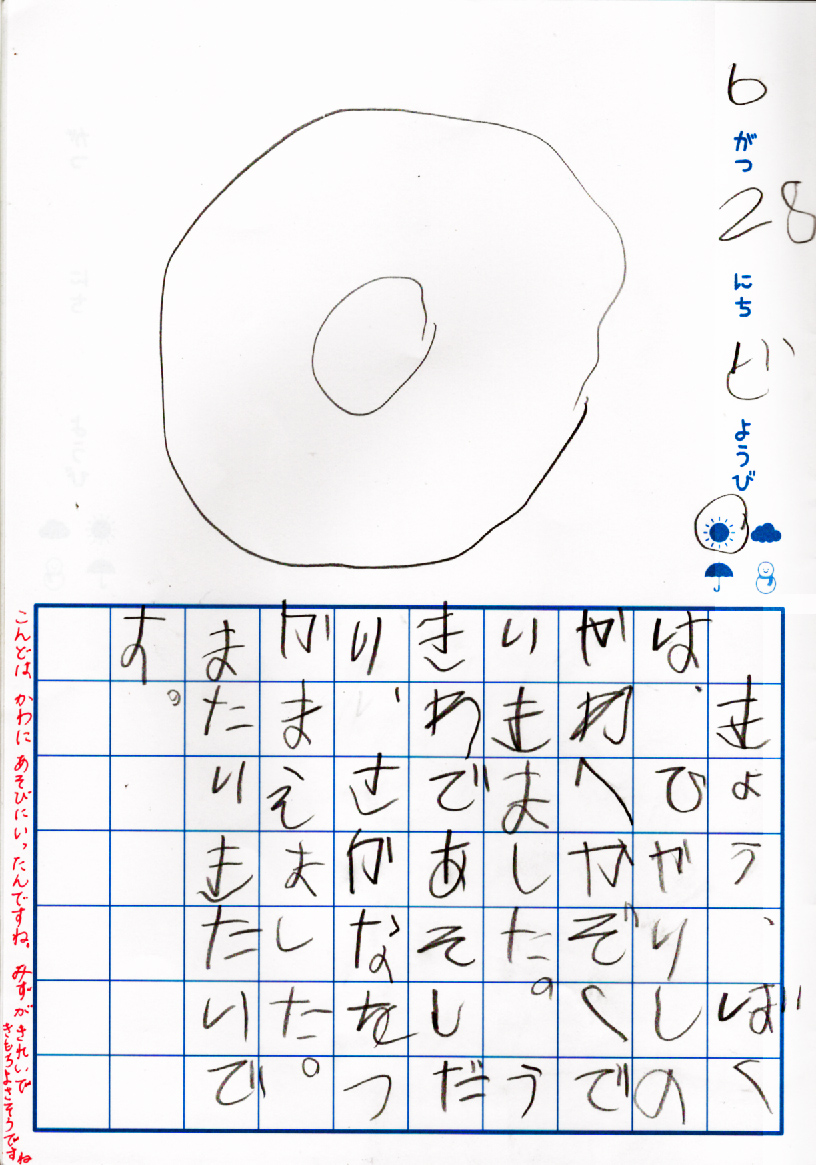 6がつ28にちどようび
きょう、ぼく
は、ひがりしの
かわへかぞくで
いきました。う
きわであそしだ
り、さかなをつ
かまえました。
またいきたいで
す。
こんどは、かわに あそびにいったんですね。みずがきれいで
きもちよさそうですね